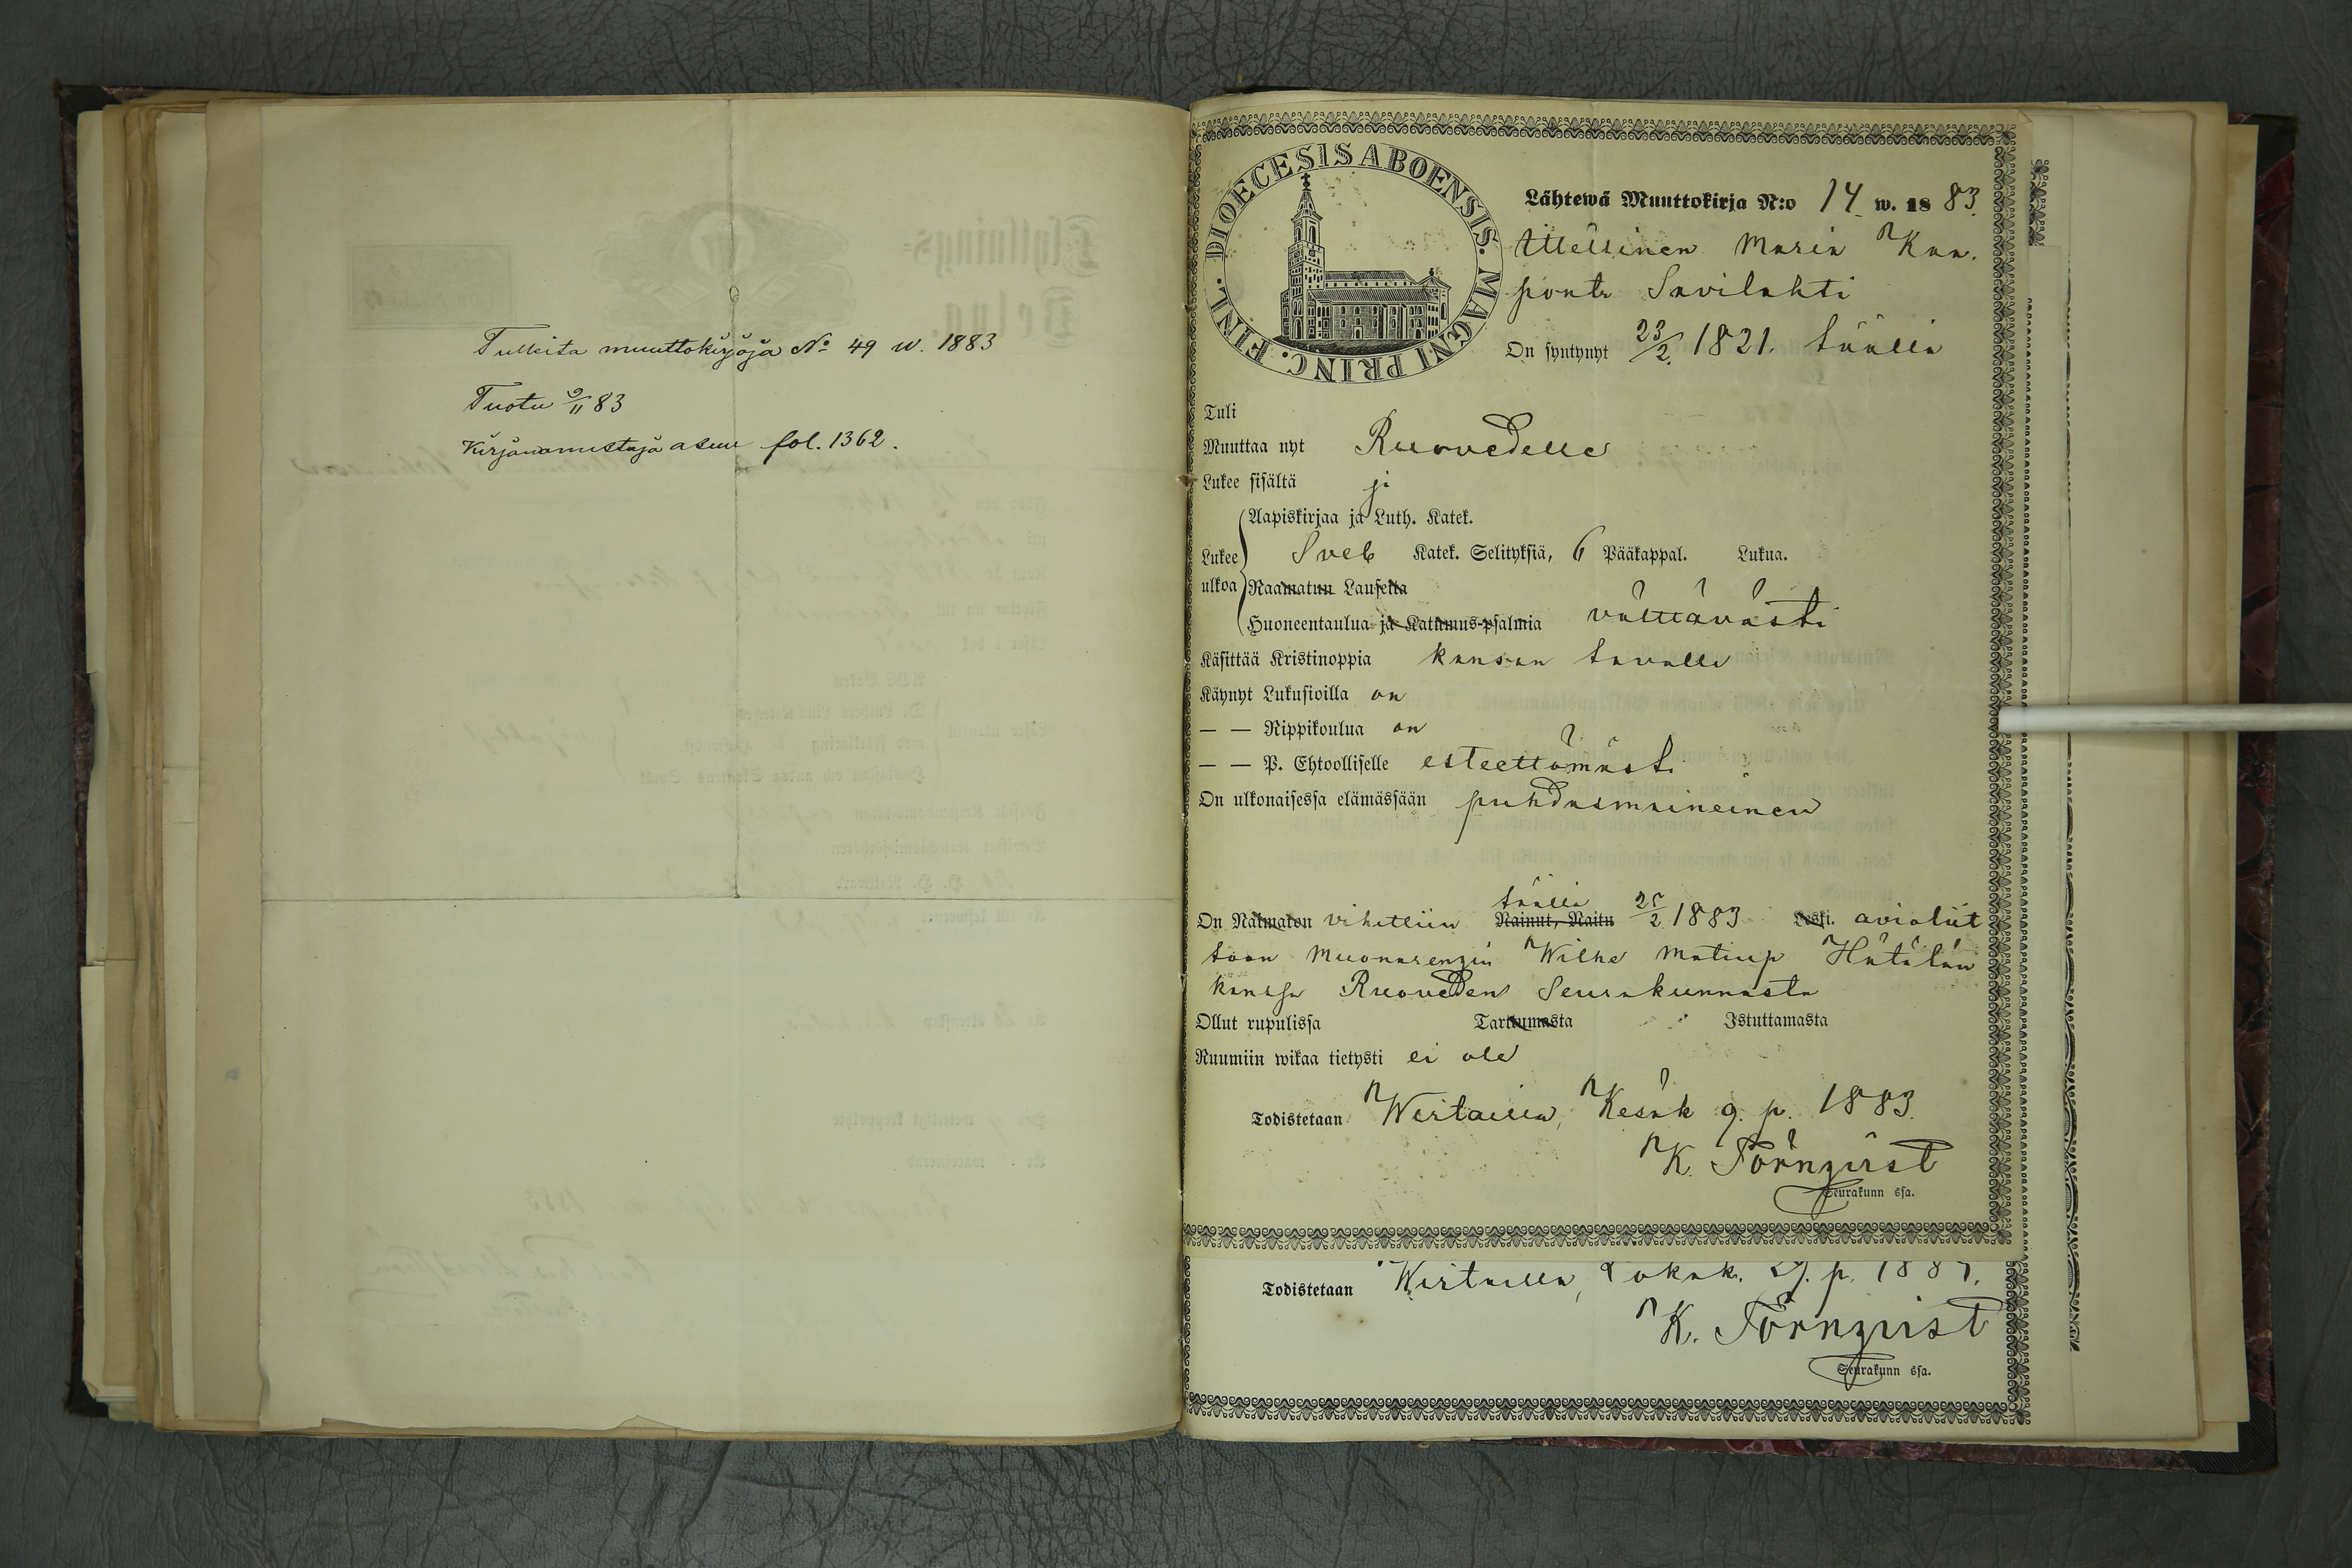 Tulleita muuttokirjoja No 49 w. 1883
Tuotu 9/11 83
Kirjanomistaja asuu fol. 1362.
DIOECESIS ABOENSIS. MAGNI PRINC. FINL.
Lähtewä Muuttokirja N:o 14 w. 1883.
Itellinen Maria
Savilahti
On syntynyt 23/2 1821. täällä
Tuli
Muuttaa nyt Ruovedelle
Lukee sisältä ja
Aapiskirjaa ja Luth. Katek.
Lukee ulkoa
Sveb Katek. Selityksiä, 6 Pääkappal. Lukua.
Raamatun Lauseita
Huoneentaulua ja Katumus-psalmia välttävästi
Käsittää Kristinoppia kansan tavalla
Käynyt Lukusioilla on
— — Rippikoulua on
— — P. Ehtoolliselle esteettömästi
On ulkonaisessa elämässään puhdasmaineinen
täällä
On Naimaton vihittiin Nainut, Naitu 25/2 1883 Leski. avioliit
toon Muonarengin Wilhe Matinp Hätälän
kanssa Ruoveden Seurakunnasta
Ollut rupulissa Tarttumasta Istuttamasta
Ruumiin wikaa tietysti ei ole
Todistetaan Wirtailla, Kesäk 9. p. 1883.
K. Törnqvist
Seurakunn ssa.
Todistetaan Wirtailla, Lokak. p. 188
K. Törnqvist
Seurakunn ssa.